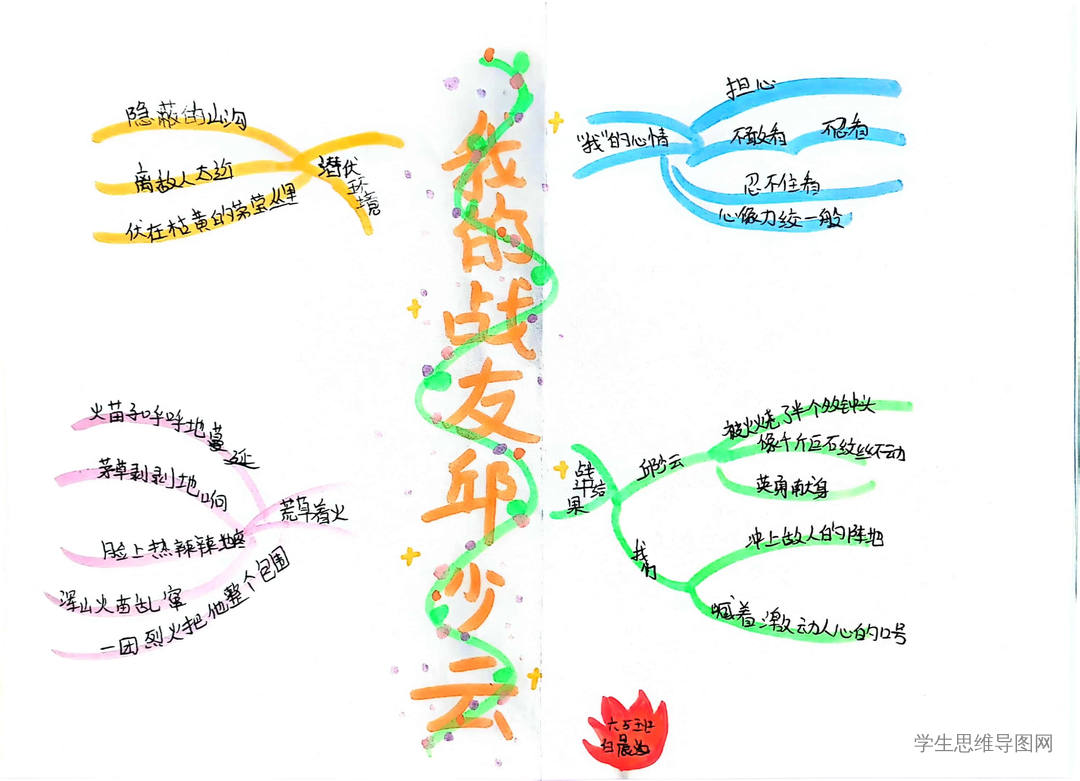 我的战友邱少云
潜伏环境
隐蔽的山沟
离敌人太近
伏在枯黄的茅草丛里
"我"的心情
担心
不敢看
不忍看
忍不住看
心像刀绞一般
荒草着火
火苗子呼呼地蔓延
茅草剥剥地响
脸上热辣辣地疼
浑山火苗乱窜
一团烈火把他整个包围
战斗结果
邱少云
被火烧了半个多钟头
像千斤巨石纹丝不动
英勇献身
我们
冲上敌人的阵地
喊着激动人心的口号
六5班
学生思维导图网